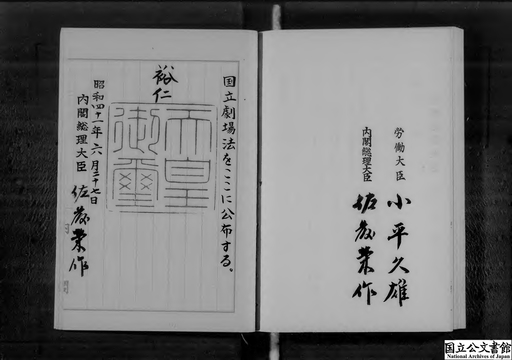 労働大臣 小平久雄
内閣総理大臣 佐藤栄作
国立劇場法をここに公布する。
裕仁
天皇御璽
昭和四十一年六月二十七日
内閣総理大臣 佐藤栄作
国立公文書館
National Archives of Japan